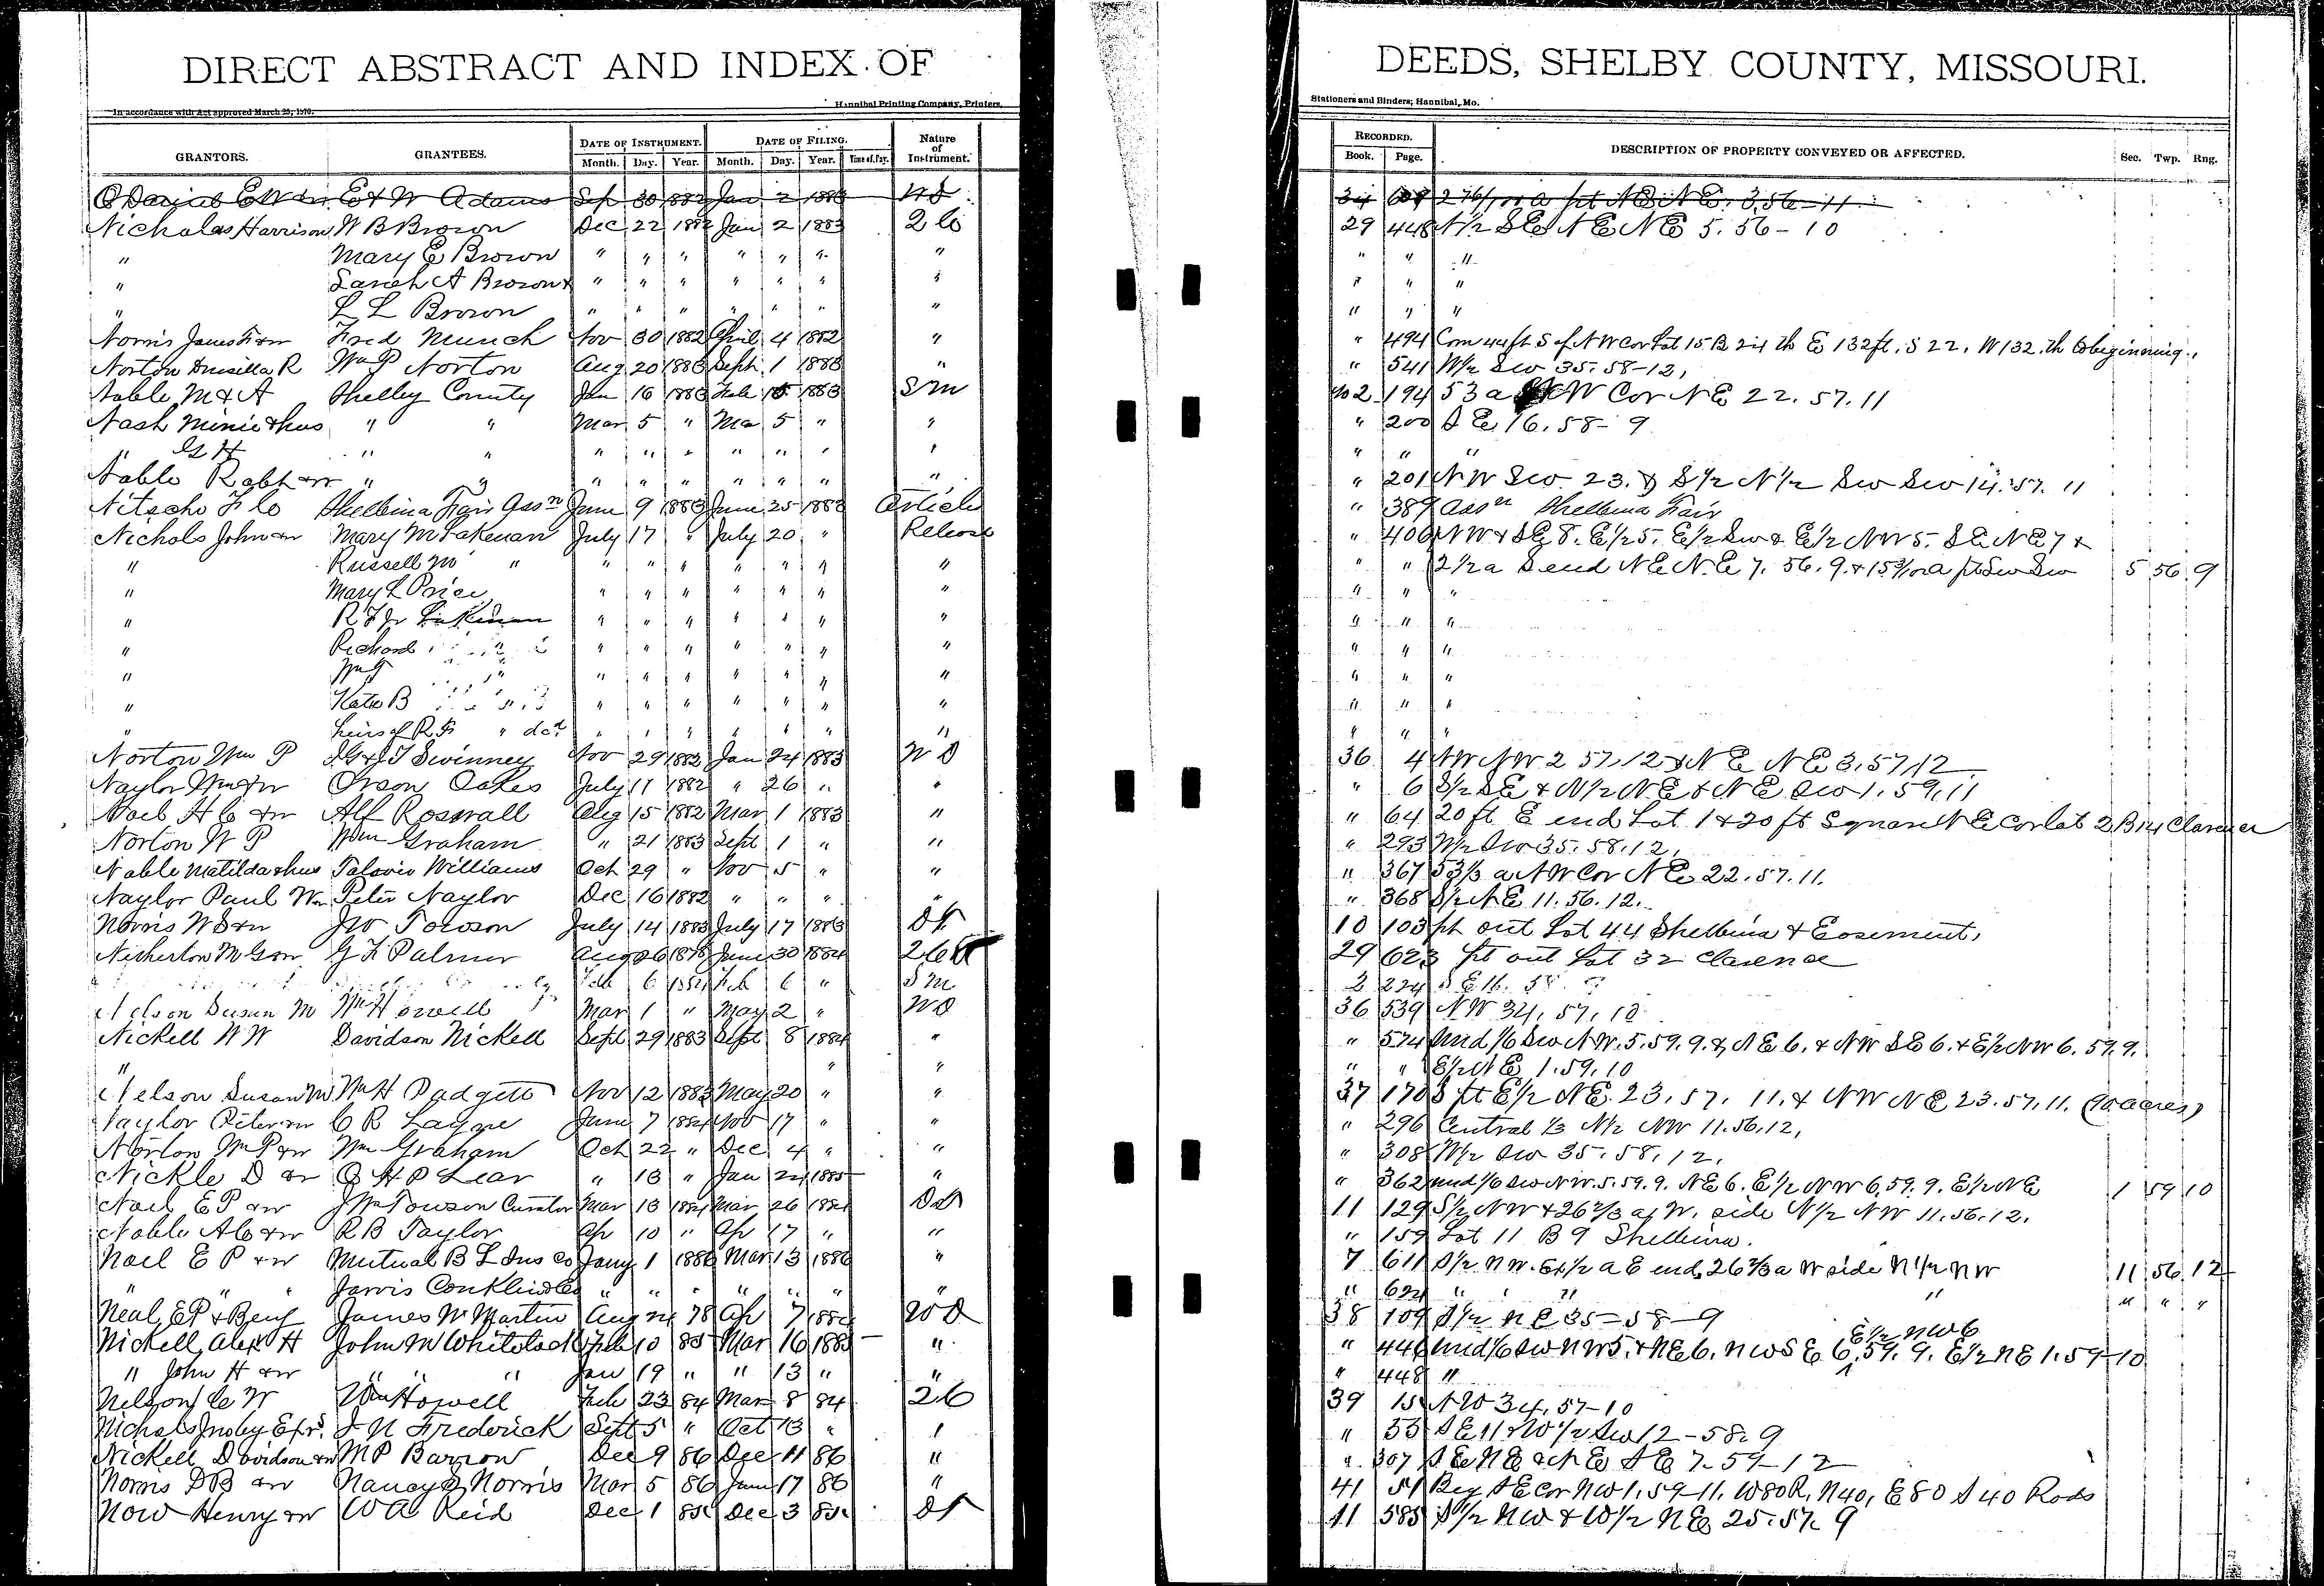 DIRECT ABSTRACT AND INDEX OF
DEEDS, SHELBY COUNTY, MISSOURI.
In accordance with Act approved March 25, 1870.
Hannibal Printing Company, Printers,
Stationers and Binders; Hannibal, Mo.
GRANTORS. GRANTEES. DATE OF INSTRUMENT. DATE OF FILING. Nature of Instrument. RECORDED. DESCRIPTION OF PROPERTY CONVEYED OR AFFECTED. Sec. Twp. Rng.
Month. Day. Year. Month. Day. Year. Time of Day. Book. Page.
E & W Adams Sep 30 1882 Jan 2 1883 WD 34 3.56-11
Nicholas Harrison W B Brown Dec 22 1882 Jan 2 1883 2C 29 448 N½ SE NE NE 5.56-10
" Mary E Brown " " " " " " " " " "
" Sarah A Brown & " " " " " " " " " "
" L L Brown " " " " " " " " " "
Norris James F & w Fred Munch Nov 30 1882 April 4 1882 " " 494 Com 44 ft S of NW Cor Lot 15 B 24 th E 132 ft. S 22. W 132. th to beginning.
Norton Drusilla R Wm P Norton Aug 20 1883 Sept 1 1883 " " 541 W½ SW 35.58-12,
Noble M & A Shelby County Jan 16 1883 Feb 15 1883 SM 194 53 a NW Cor NE 22.57.11
Nash Minie & hus " " Mar 5 " Ma 5 " " " 200 SE 16.58-9
" G H " " " " " " " " " " " "
Noble Robt & w " " " " " " " " " " 201 NW SW 23. & S½ N½ SW SW 14.57.11
Nitsche F C Shelbina Fair Assn June 9 1883 June 25 1883 Article " 389 Assn Shelbina Fair
Nichols John & w Mary M Lakenan July 17 " July 20 " Release " 406 NW & SE 8. E½ 5. E½ SW & E½ NW 5. SE NE 7 &
" Russell M " " " " " " " " " " 2½ a S end NE NE 7.56.9. & pt SW SW 5 56 9
" Mary L Price " " " " " " " " " "
" R F Jr Lakenan " " " " " " " " " "
" Richard " " " " " " " " " "
" Wm G " " " " " " " " " " "
" Kate B " " " " " " " " " "
" heirs of R F " decd " " " " " " " " " "
Norton Wm P J G & J T Swinney Nov 29 1883 Jan 24 1883 WD 36 4 NW NW 2 57.12 & NE NE 3.57.12
Naylor Wm & w Orson Oakes July 11 1882 " 26 " " " 6 S½ SE & N½ NE & NE SW 1.59.11
Noel H C & w Alf Roswall Aug 15 1882 Mar 1 1883 " " 64 20 ft E end Lot 1 & 20 ft Square NE Cor Lot 2 B 14 Clarence
Norton W P Wm Graham " 21 1883 Sept 1 " " " 293 W½ SW 35.58.12,
Noble Matilda & hus Williams Oct 29 " Nov 5 " " " 367 53⅓ a NW Cor NE 22.57.11.
Naylor Paul Wm Peter Naylor Dec 16 1882 " " " " " 368 S½ NE 11.56.12.
Norris W S & w Jno Towson July 14 1883 July 17 1883 DT 10 103 pt out Lot 44 Shelbina & Easement,
G F Palmer Aug 26 1878 June 30 1884 29 623 pt out Lot 32 Clarence
Feb 6 1884 Feb 6 " SM 2 224 SE 16. 58
Nelson Susan M Wm Howell Mar 1 " May 2 " WD 36 539 NW 34, 57, 10
Nickell W W Davidson Nickell Sept 29 1883 Sept 8 1884 " " 574 und 1/6 SW NW. 5.59.9. & NE 6. & NW SE 6. & E½ NW 6. 59.9.
" " " " " E½ NE 1.59.10
Nelson Susan M Wm H Padgett Nov 12 1883 May 20 " " 37 170 S pt E½ NE 23.57.11. & NW NE 23.57.11. (90 acres)
Naylor Peter & w C R Lagge June 7 1884 Nov 17 " " " 296 Central ⅓ N½ NW 11.56.12,
Norton Wm P & w Wm Graham Oct 22 " Dec 4 " " " 308 W½ SW 35.58.12.
Nickle D & w O H P Lear " 18 " Jan 24 1885 " " 362 und 1/6 SW NW. 5.59.9. NE 6. E½ NW 6.59.9. E½ NE 1 59 10
Noel E P & w J Wm Towson Curator Mar 13 1884 Mar 26 1884 DT 11 129 S½ NW & 26⅔ a W. side N½ NW 11.56.12.
Noble A C & w R B Taylor Ap 10 " Ap 17 " " " 159 Lot 11 B 9 Shelbina.
Noel E P & w Mutual B L Ins Co Jany 1 1886 Mar 13 1886 " 7 611 S½ NW. Ex ½ a E end, 26⅔ a W side N½ NW 11 56 12
" " " Jarvis Conklin & Co " " " " " " " " 624 " " " " " " "
Neal E P & Benj James W Martin Aug 24 78 Ap 7 WD 38 109 S½ NE 35-58-9
Nickell Alex H John M Whitelock Feb 10 85 Mar 16 1885 " " 446 und 1/6 SW NW 5. & NE 6. NW SE 6, E½ NW 6 59.9. E½ NE 1.59-10
" John H & w " " " Jan 19 " " 13 " " " 448 "
Nelson C W Wm Howell Feb 23 84 Mar 8 84 2C 39 15 NW 34.57-10
Nichols Jno by Exrs. J N Frederick Sept 5 " Oct 13 " " " 33 SE 11 & W½ SW 12-58.9
Nickell Davidson & w M P Barrow Dec 9 86 Dec 11 86 " " 307 SE NE & NE SE 7-59-12
Norris D B & w Nancy J Norris Mar 5 86 June 17 86 " 41 51 Beg SE Cor NW 1.59-11. W 80 R, N 40, E 80 S 40 Rods
Now Henry & w W A Reid Dec 1 Dec 3 DT 11 585 S½ NW & W½ NE 25.57.9